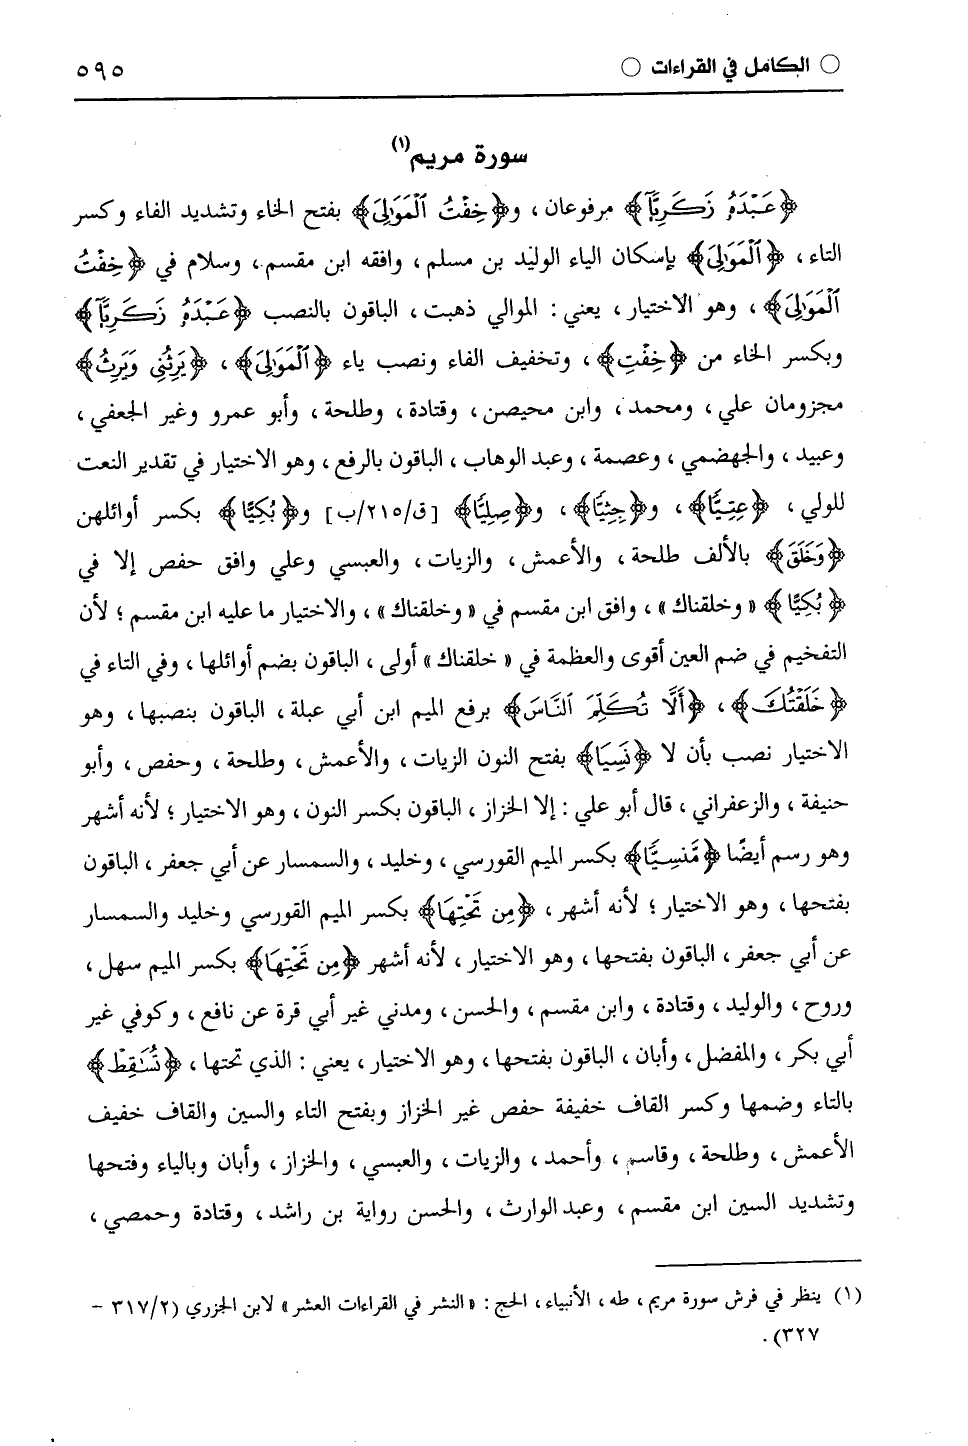 ○ الكامل في القراءات ○ ٥٩٥
سورة مريم(١)
﴿عَبْدَهُ زَكَرِيَّآ﴾ مرفوعان، و﴿خِفْتُ ٱلْمَوَٰلِيَ﴾ بفتح الخاء وتشديد الفاء وكسر
التاء، ﴿ٱلْمَوَٰلِيَ﴾ بإسكان الياء الوليد بن مسلم، وافقه ابن مقسم، وسلام في ﴿خِفْتُ
ٱلْمَوَٰلِيَ﴾، وهو الاختيار، يعني: الموالي ذهبت، الباقون بالنصب ﴿عَبْدَهُ زَكَرِيَّآ﴾
وبكسر الخاء من ﴿خِفْتِ﴾، وتخفيف الفاء ونصب ياء ﴿ٱلْمَوَٰلِيَ﴾، ﴿يَرِثُنِي وَيَرِثُ﴾
مجزومان علي، ومحمد، وابن محيصن، وقتادة، وطلحة، وأبو عمرو وغير الجعفي،
وعبيد، والجهضمي، وعصمة، وعبد الوهاب، الباقون بالرفع، وهو الاختيار في تقدير النعت
للولي، ﴿عِتِيًّا﴾، و﴿جِثِيًّا﴾، و﴿صِلِيًّا﴾ [ق/٢١٥/ب] و﴿بُكِيًّا﴾ بكسر أوائلهن
﴿وَخَلَقَ﴾ بالألف طلحة، والأعمش، والزيات، والعبسي وعلي وافق حفص إلا في
﴿بُكِيًّا﴾ «وخلقناك»، وافق ابن مقسم في «وخلقناك»، والاختيار ما عليه ابن مقسم؛ لأن
التفخيم في ضم العين أقوى والعظمة في «خلقناك» أولى، الباقون بضم أوائلها، وفي التاء في
﴿خَلَقْتُكَ﴾، ﴿أَلَّا تُكَلِّمَ ٱلنَّاسَ﴾ برفع الميم ابن أبي عبلة، الباقون بنصبها، وهو
الاختيار نصب بأن لا ﴿نَسِيَا﴾ بفتح النون الزيات، والأعمش، وطلحة، وحفص، وأبو
حنيفة، والزعفراني، قال أبو علي: إلا الخزاز، الباقون بكسر النون، وهو الاختيار؛ لأنه أشهر
وهو رسم أيضًا ﴿مَّنسِيًّا﴾ بكسر الميم القورسي، وخليد، والسمسار عن أبي جعفر، الباقون
بفتحها، وهو الاختيار؛ لأنه أشهر، ﴿مِن تَحْتِهَا﴾ بكسر الميم القورسي وخليد والسمسار
عن أبي جعفر، الباقون بفتحها، وهو الاختيار، لأنه أشهر ﴿مِن تَحْتِهَا﴾ بكسر الميم سهل،
وروح، والوليد، وقتادة، وابن مقسم، والحسن، ومدني غير أبي قرة عن نافع، وكوفي غير
أبي بكر، والمفضل، وأبان، الباقون بفتحها، وهو الاختيار، يعني: الذي تحتها، ﴿تُسَٰقِطْ﴾
بالتاء وضمها وكسر القاف خفيفة حفص غير الخزاز وبفتح التاء والسين والقاف خفيف
الأعمش، وطلحة، وقاسم، وأحمد، والزيات، والعبسي، والخزاز، وأبان وبالياء وفتحها
وتشديد السين ابن مقسم، وعبد الوارث، والحسن رواية بن راشد، وقتادة وحمصي،
(١) ينظر في فرش سورة مريم، طه، الأنبياء، الحج: «النشر في القراءات العشر» لابن الجزري (٣١٧/٢ –
٣٢٧).